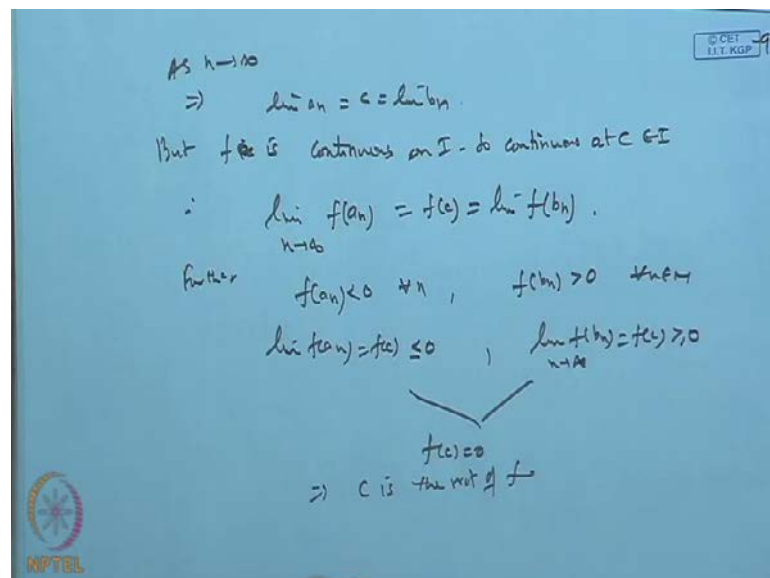 © CET
I.I.T. KGP
As n→∞
⇒ lim an = c = lim bn.
But f is continuous on I - so continuous at c ∈ I
∴ lim f(an) = f(c) = lim f(bn).
n→∞
Further f(an)<0 ∀n , f(bn)>0 ∀n∈N
lim f(an) = f(c) ≤0 , lim f(bn) = f(c) ≥0
n→∞
f(c)=0
⇒ c is the root of f
NPTEL